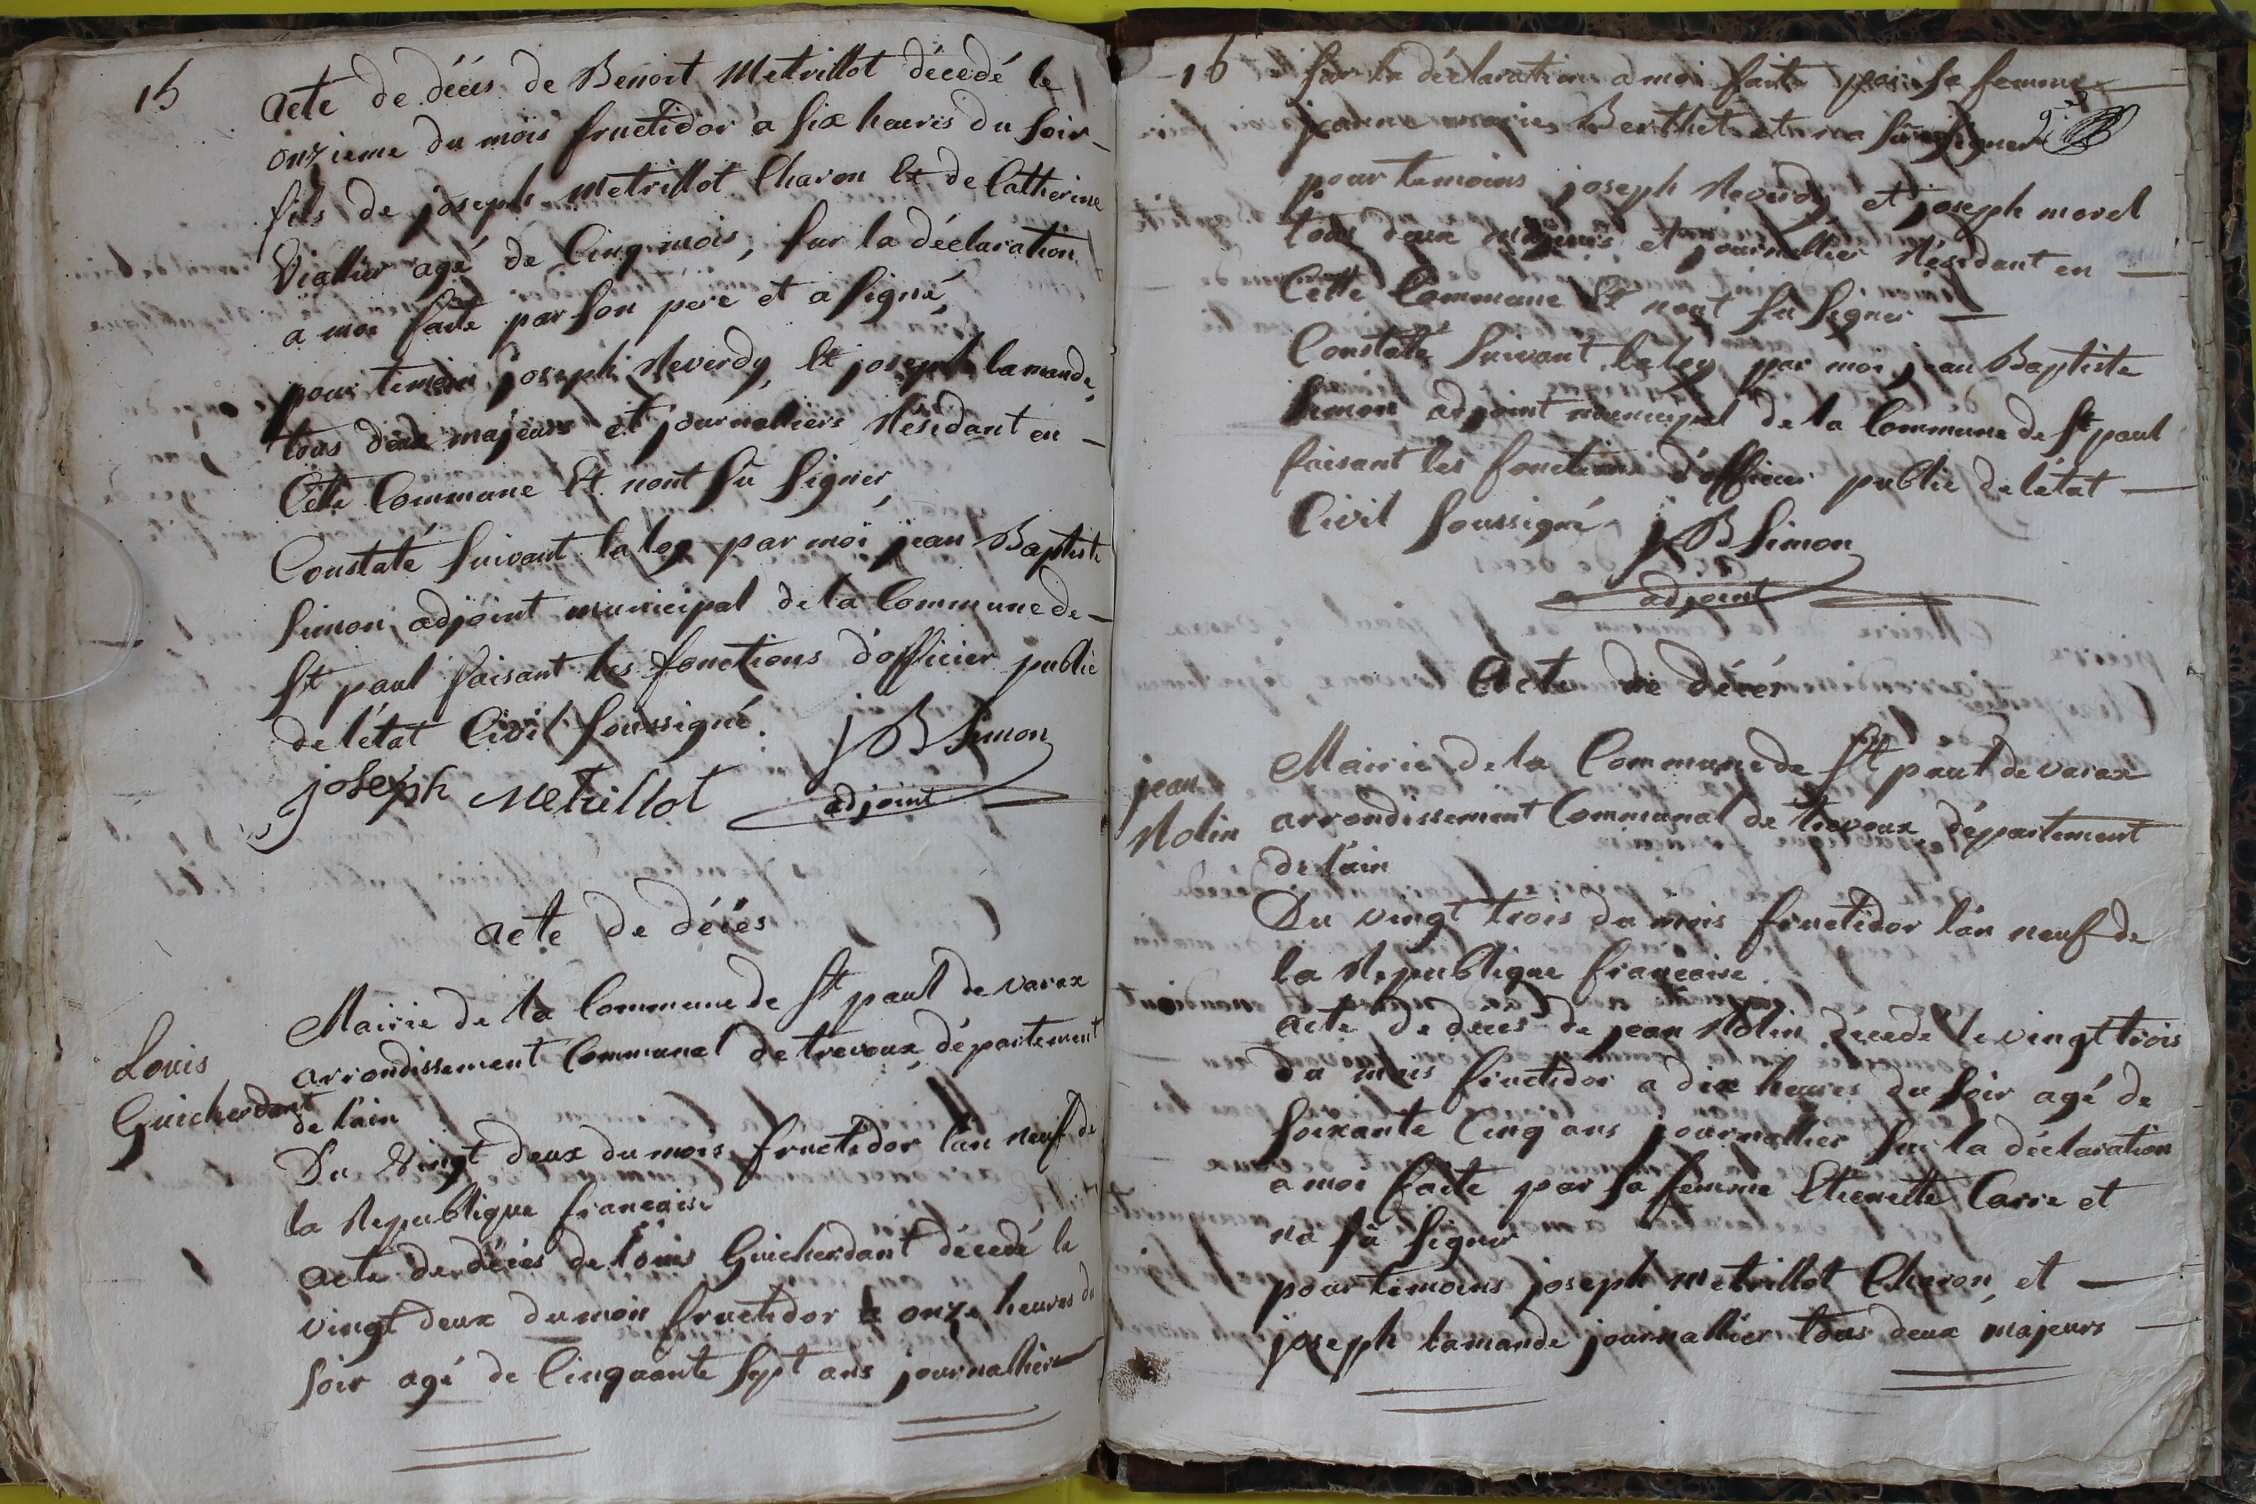 15
acte de décés de Benoit Metrillot décedé le
onzieme du mois fructidor a six heures du soir
fils de joseph Metrillot Charon Et de Catherine
Viallier agé de Cinq mois, sur la déclaration
a moi faite par son pere et a signé
pour temoin joseph Reverdy, Et joseph lamande,
tous deux majeurs et journalliers Résidant en
Cette Commune Et nont sû signer,
Constaté suivant la loy par moi jean Baptiste
simon adjoint municipal de la Commune de
St paul faisant les fonctions d'officier public
de l'état Civil soussigné.
J B simon
joseph Metrillot
adjoint
acte de décés
Louis
Guicherdant
Mairie de la Commune de St paul de varax
arrondissement Communal de trevoux département
de l'ain
Du Vingt deux du mois fructidor l'an neuf de
la Republique francaise
acte de décés de louis Guicherdant décedé le
vingt deux du mois fructidor a onze heures du
soir agé de Cinquante sept ans journallier
16
sur la déclaration a moi faite par sa femme
jeanne marie Berthet et na sû signer
pour temoins joseph Reverdy et joseph morel
tous deux majeurs et journallier Résidant en
Cette Commune Et nont sû signer
Constaté suivant la loy par moi jean Baptiste
simon adjoint municipal de la Commune de St paul
faisant les fonctions d'officier public de l'état
Civil soussigné
J B simon
adjoint
Acte de décés
jean
Rolin
Mairie de la Commune de St paul de varax
arrondissement Communal de trevoux département
de l'ain
Du vingt trois du mois fructidor l'an neuf de
la Republique francaise
acte de décés de jean Rolin décedé le vingt trois
du mois fructidor a dix heures du soir agé de
soixante Cinq ans journallier sur la déclaration
a moi faite par sa femme Etienette Carre et
na sû signer
pour temoins joseph Metrillot Charon, et
joseph lamande journallier tous deux majeurs